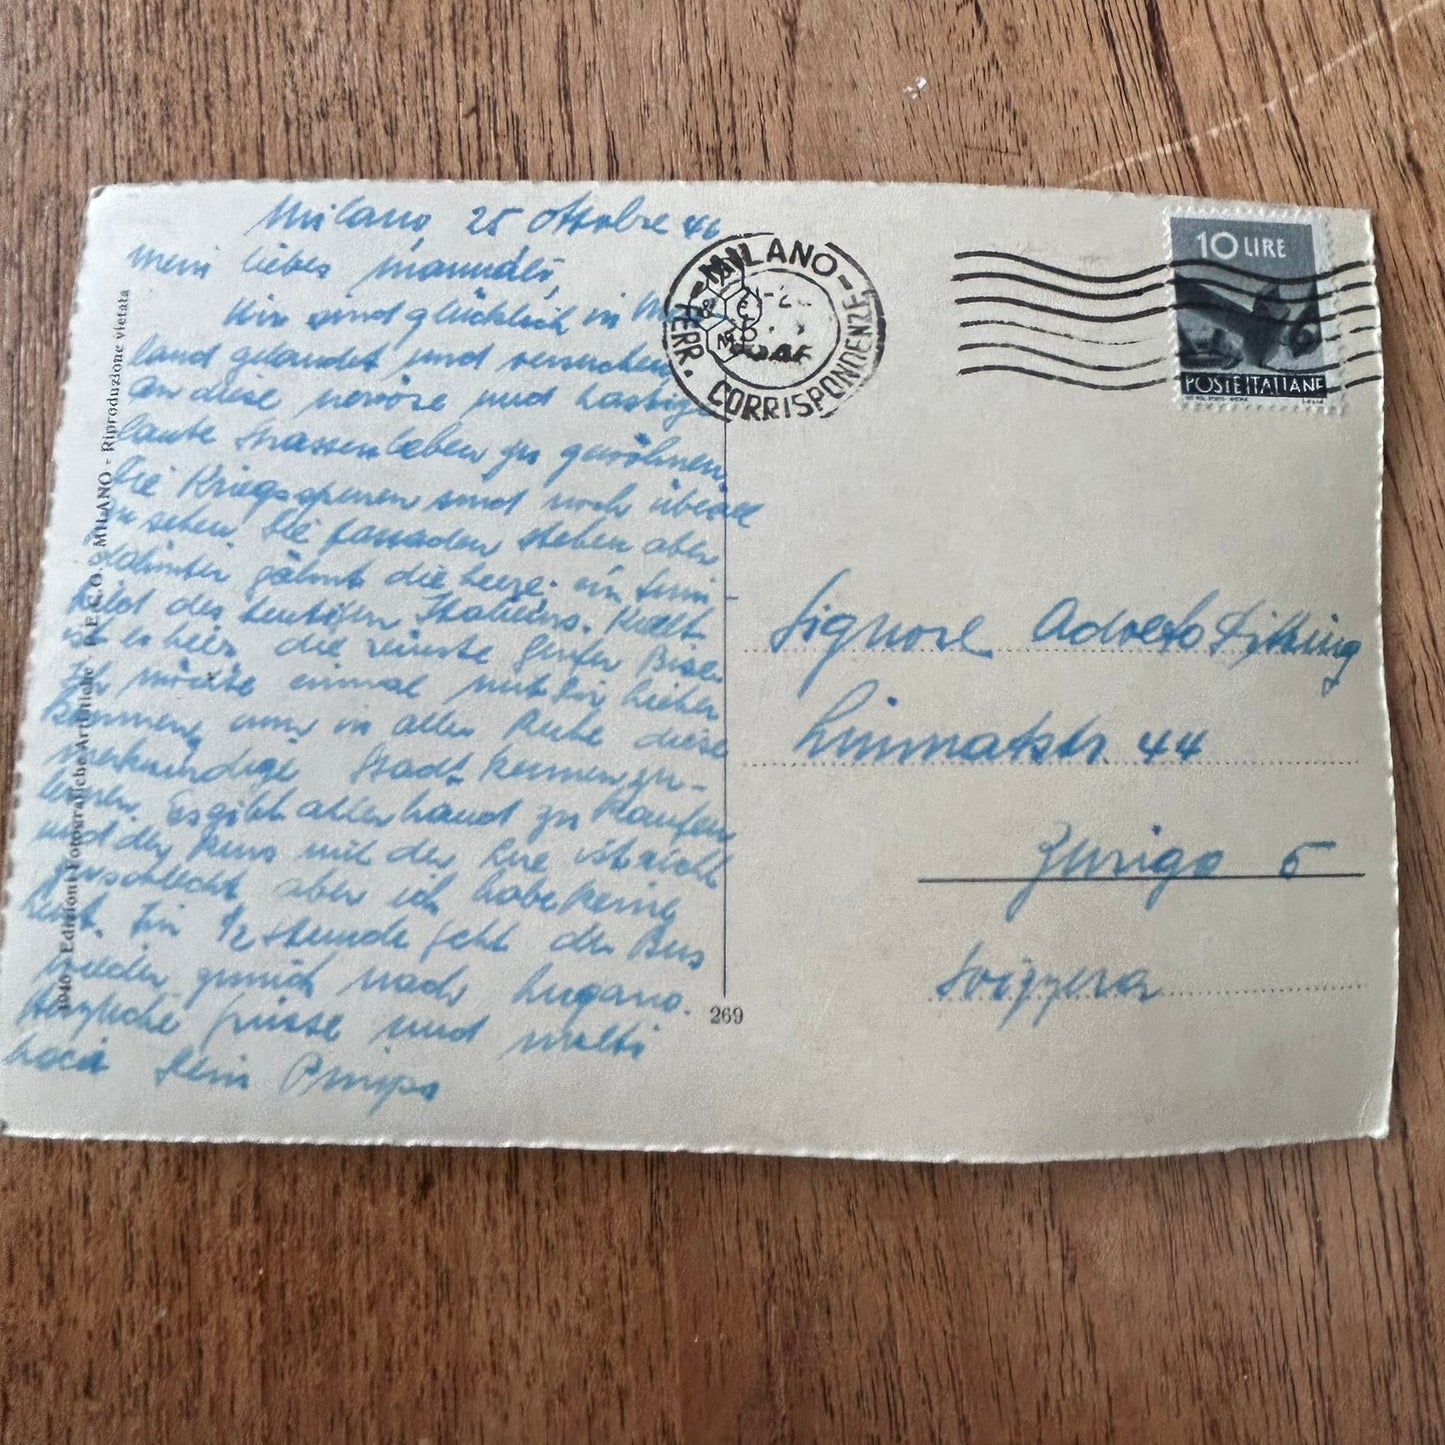 Milano, 25 Ottobre 46
Mein liebes Mannděli,
Wir sind glücklich in Mai
land gelandet und versuchen
an diese nervöse und hastige
laute Strassenleben zu gewöhnen.
Die Kriegsspuren sind noch überall
zu sehen. Die Fassaden stehen aber
dahinter gähnt die Leere. ein Sinn
bild des heutigen Italiens. Kalt
ist es hier die reinste Genfer Bise.
Ich möchte einmal mit Dir hieher
kommen, um in aller Ruhe diese
merkwürdige Stadt kennenzu-
lernen. Es gibt allerhand zu Kaufen
und der Kurs mit der Lire ist nicht
zu schlecht aber ich habe keine
Zeit. In 1/2 Stunde geht der Bus
wieder zurück nach Lugano.
Herzliche Grüsse und molti
baci Dein
MILANO
FERR. CORRISPONDENZE
10 LIRE
POSTE ITALIANE
Signore
Limmatstr 44
Zurigo 5
Svizzera
269
1946 - Edizioni Fotografiche Artistiche MILANO - Riproduzione vietata